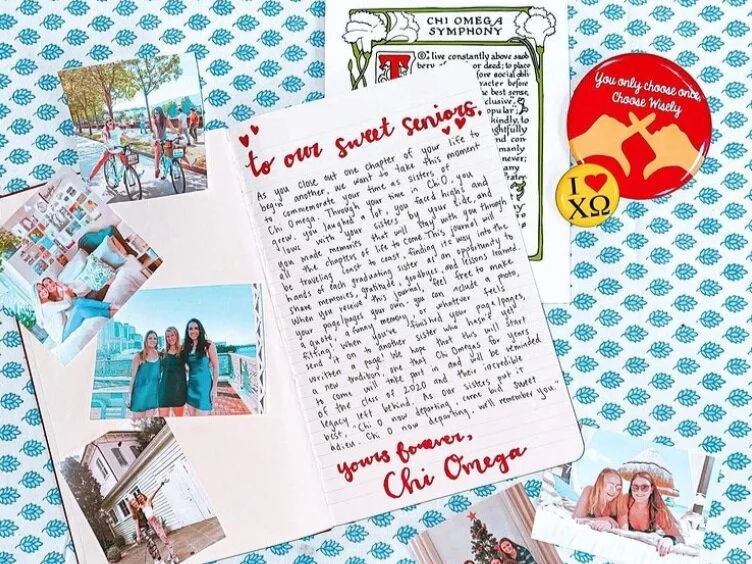 CHI OMEGA
SYMPHONY
To live constantly above snob
bery or deed; to place
fore social obli
racter before
the best sense,
clusive;
popular;
kindly, to
ghtfully
and
manly
never;
any
You only choose once,
Choose Wisely
I ♥
ΧΩ
to our sweet seniors,
As you close out one chapter of your life to
begin another, we want to take this moment
to commemorate your time as sisters of
Chi Omega. Through your time in Chi O, you
grew, you laughed a lot, you faced highs and
lows with your sisters by your side, and
you made memories that will stay with you through
all the chapters of life to come. This journal will
be traveling coast to coast, finding its way into the
hands of each graduating sister as an opportunity to
share memories, gratitude, goodbyes, and lessons learned.
When you receive this journal, feel free to make
your page/pages your own. You can include a photo,
a quote, a funny memory, or whatever feels
fitting. When you've finished your page/pages,
send it on to another sister who hasn't yet
written a page. We hope that this will start
a new tradition, one that Chi Omegas for years
to come will take part in and will be reminded
of the class of 2020 and their incredible
legacy left behind. As our sisters put it
best, "Chi O now departing, come bid sweet
adieu. Chi O now departing, we'll remember you."
yours forever,
Chi Omega